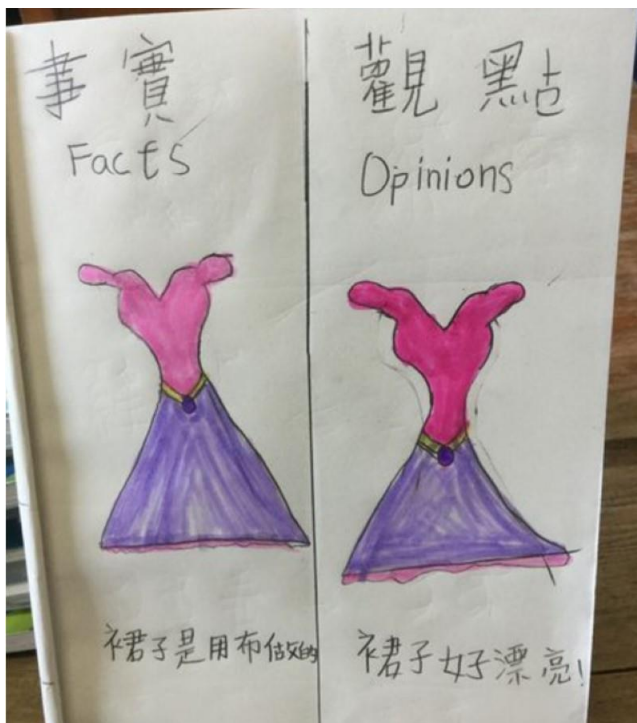 事實
Facts
裙子是用布做的
觀點
Opinions
裙子好漂亮!